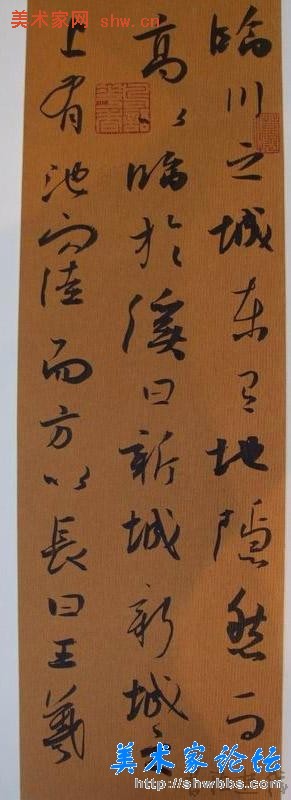 美术家网 shw.cn
臨川之城东有地隱然而
高以臨於溪曰新城新城之
上有池而洼而方以長曰王羲
美术家论坛
http://shwbbs.com